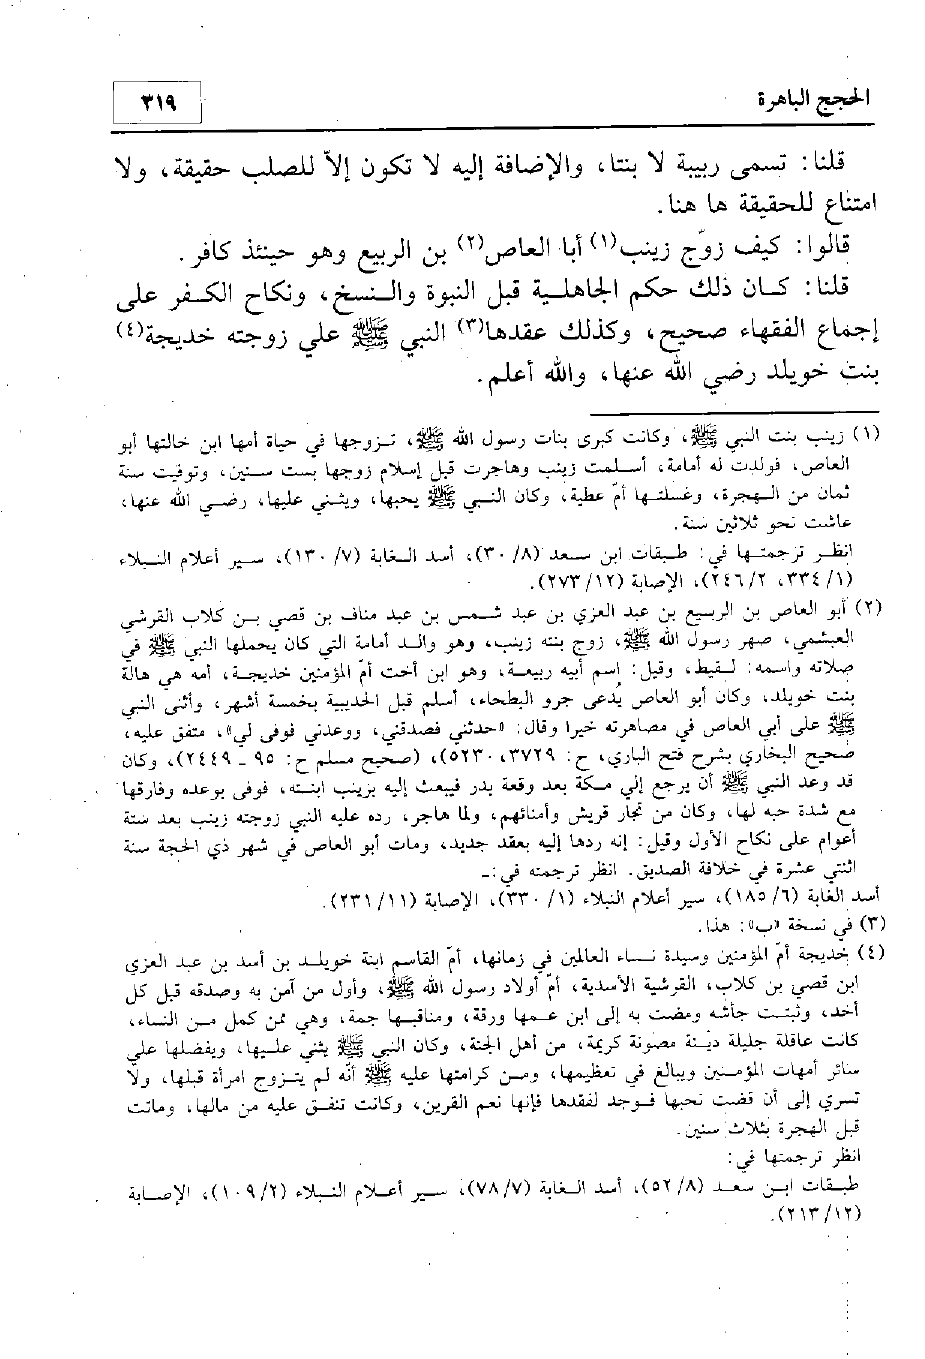 الحجج الباهرة
٣١٩
قلنا: تسمى ربيبة لا بنتا، والإضافة إليه لا تكون إلاّ للصلب حقيقة، ولا
امتناع للحقيقة ها هنا.
قالوا: كيف زوّج زينب(١) أبا العاص(٢) بن الربيع وهو حينئذ كافر.
قلنا: كان ذلك حكم الجاهلية قبل النبوة والنسخ، ونكاح الكفر على
إجماع الفقهاء صحيح، وكذلك عقدها(٣) النبي ﷺ علي زوجته خديجة(٤)
بنت خويلد رضي الله عنها، والله أعلم.
(١) زينب بنت النبي ﷺ، وكانت كبرى بنات رسول الله ﷺ، تزوجها في حياة أمها ابن خالتها أبو
العاص، فولدت له أمامة، أسلمت زينب وهاجرت قبل إسلام زوجها بست سنين، وتوفيت سنة
ثمان من الهجرة، وغسلتها أمّ عطية، وكان النبي ﷺ يحبها، ويثني عليها، رضي الله عنها،
عاشت نحو ثلاثين سنة.
انظر ترجمتها في: طبقات ابن سعد (٨/ ٣٠)، أسد الغابة (٧/ ١٣٠)، سير أعلام النبلاء
(١/ ٣٣٤، ٢/ ٢٤٦)، الإصابة (١٢/ ٢٧٣).
(٢) أبو العاص بن الربيع بن عبد العزي بن عبد شمس بن عبد مناف بن قصي بن كلاب القرشي
العبشمي، صهر رسول الله ﷺ، زوج بنته زينب، وهو والد أمامة التي كان يحملها النبي ﷺ في
صلاته واسمه: لقيط، وقيل: اسم أبيه ربيعة، وهو ابن أخت أمّ المؤمنين خديجة، أمه هي هالة
بنت خويلد، وكان أبو العاص يُدعى جرو البطحاء، أسلم قبل الحديبية بخمسة أشهر، وأثنى النبي
ﷺ على أبي العاص في مصاهرته خيرا وقال: «حدثني فصدقني، ووعدني فوفى لي»، متفق عليه،
صحيح البخاري بشرح فتح الباري، ح: ٣٧٢٩، ٥٢٣٠)، (صحيح مسلم ح: ٩٥ ـ ٢٤٤٩)، وكان
قد وعد النبي ﷺ أن يرجع إلي مكة بعد وقعة بدر فيبعث إليه بزينب ابنته، فوفى بوعده وفارقها
مع شدة حبه لها، وكان من تجار قريش وأمنائهم، ولما هاجر، رده عليه النبي زوجته زينب بعد ستة
أعوام على نكاح الأول وقيل: إنه ردها إليه بعقد جديد، ومات أبو العاص في شهر ذي الحجة سنة
اثنتي عشرة في خلافة الصديق. انظر ترجمته في:ـ
أسد الغابة (٦/ ١٨٥)، سير أعلام النبلاء (١/ ٣٣٠)، الإصابة (١١/ ٢٣١).
(٣) في نسخة «ب»: هذا.
(٤) خديجة أمّ المؤمنين وسيدة نساء العالمين في زمانها، أمّ القاسم ابنة خويلد بن أسد بن عبد العزي
ابن قصي بن كلاب، القرشية الأسدية، أمّ أولاد رسول الله ﷺ، وأول من آمن به وصدقه قبل كل
أحد، وثبتت جأشه ومضت به إلى ابن عمها ورقة، ومناقبها جمة، وهي ممن كمل من النساء،
كانت عاقلة جليلة ديّنة مصونة كريمة، من أهل الجنة، وكان النبي ﷺ يثني عليها، ويفضلها علي
سائر أمهات المؤمنين ويبالغ في تعظيمها، ومن كرامتها عليه ﷺ أنّه لم يتزوج امرأة قبلها، ولا
تسري إلى أن قضت نحبها فوجد لفقدها فإنها نعم القرين، وكانت تنفق عليه من مالها، وماتت
قبل الهجرة بثلاث سنين.
انظر ترجمتها في:
طبقات ابن سعد (٨/ ٥٢)، أسد الغابة (٧/ ٧٨)، سير أعلام النبلاء (٢/ ١٠٩)، الإصابة
(١٢/ ٢١٣).